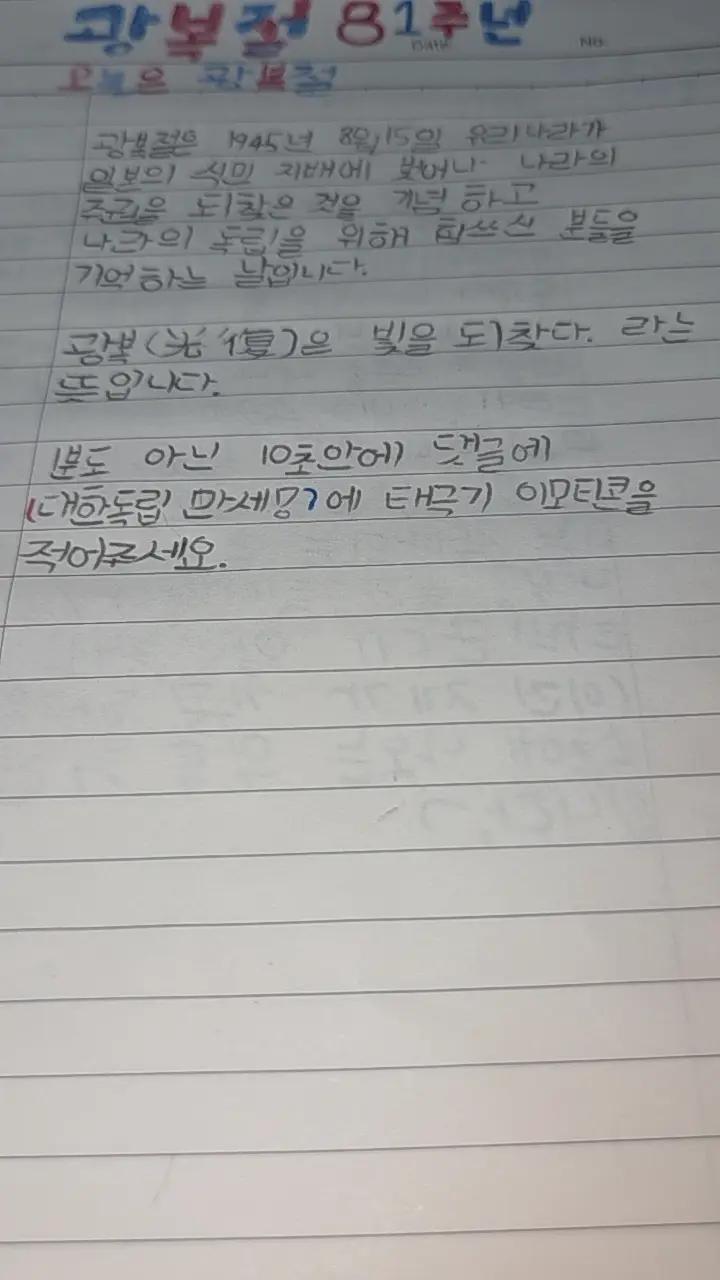 광복절 81주년
Date No
오늘은 광복절
광복절은 1945년 8월15일 우리나라가
일본의 식민 지배에 벗어나 나라의
주권을 되찾은 것을 기념 하고
나라의 독립을 위해 힘쓰신 분들을
기억하는 날입니다.
광복(光復)은 빛을 되찾다. 라는
뜻입니다.
1분도 아닌 10초안에 댓글에
(대한독립 만세만)에 태극기 이모티콘을
적어주세요.